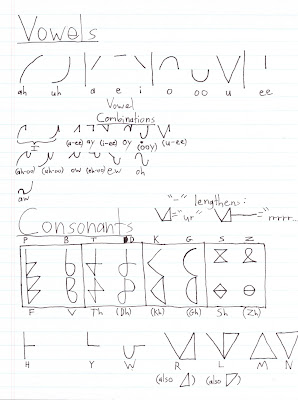 Vowels
ah uh a e i o oo u ee
Vowel
Combinations
I (a-ee) ay (i-ee) oy (ooy) (u-ee)
(ah-oo) (uh-oo) ow (eh-oo) ew oh
aw
"-" lengthens:
="ur" ="rrrr...
Consonants
P B T D K G S Z
F V Th (Dh) (Kh) (Gh) Sh (Zh)
H Y W R L M N
(also ) (also )